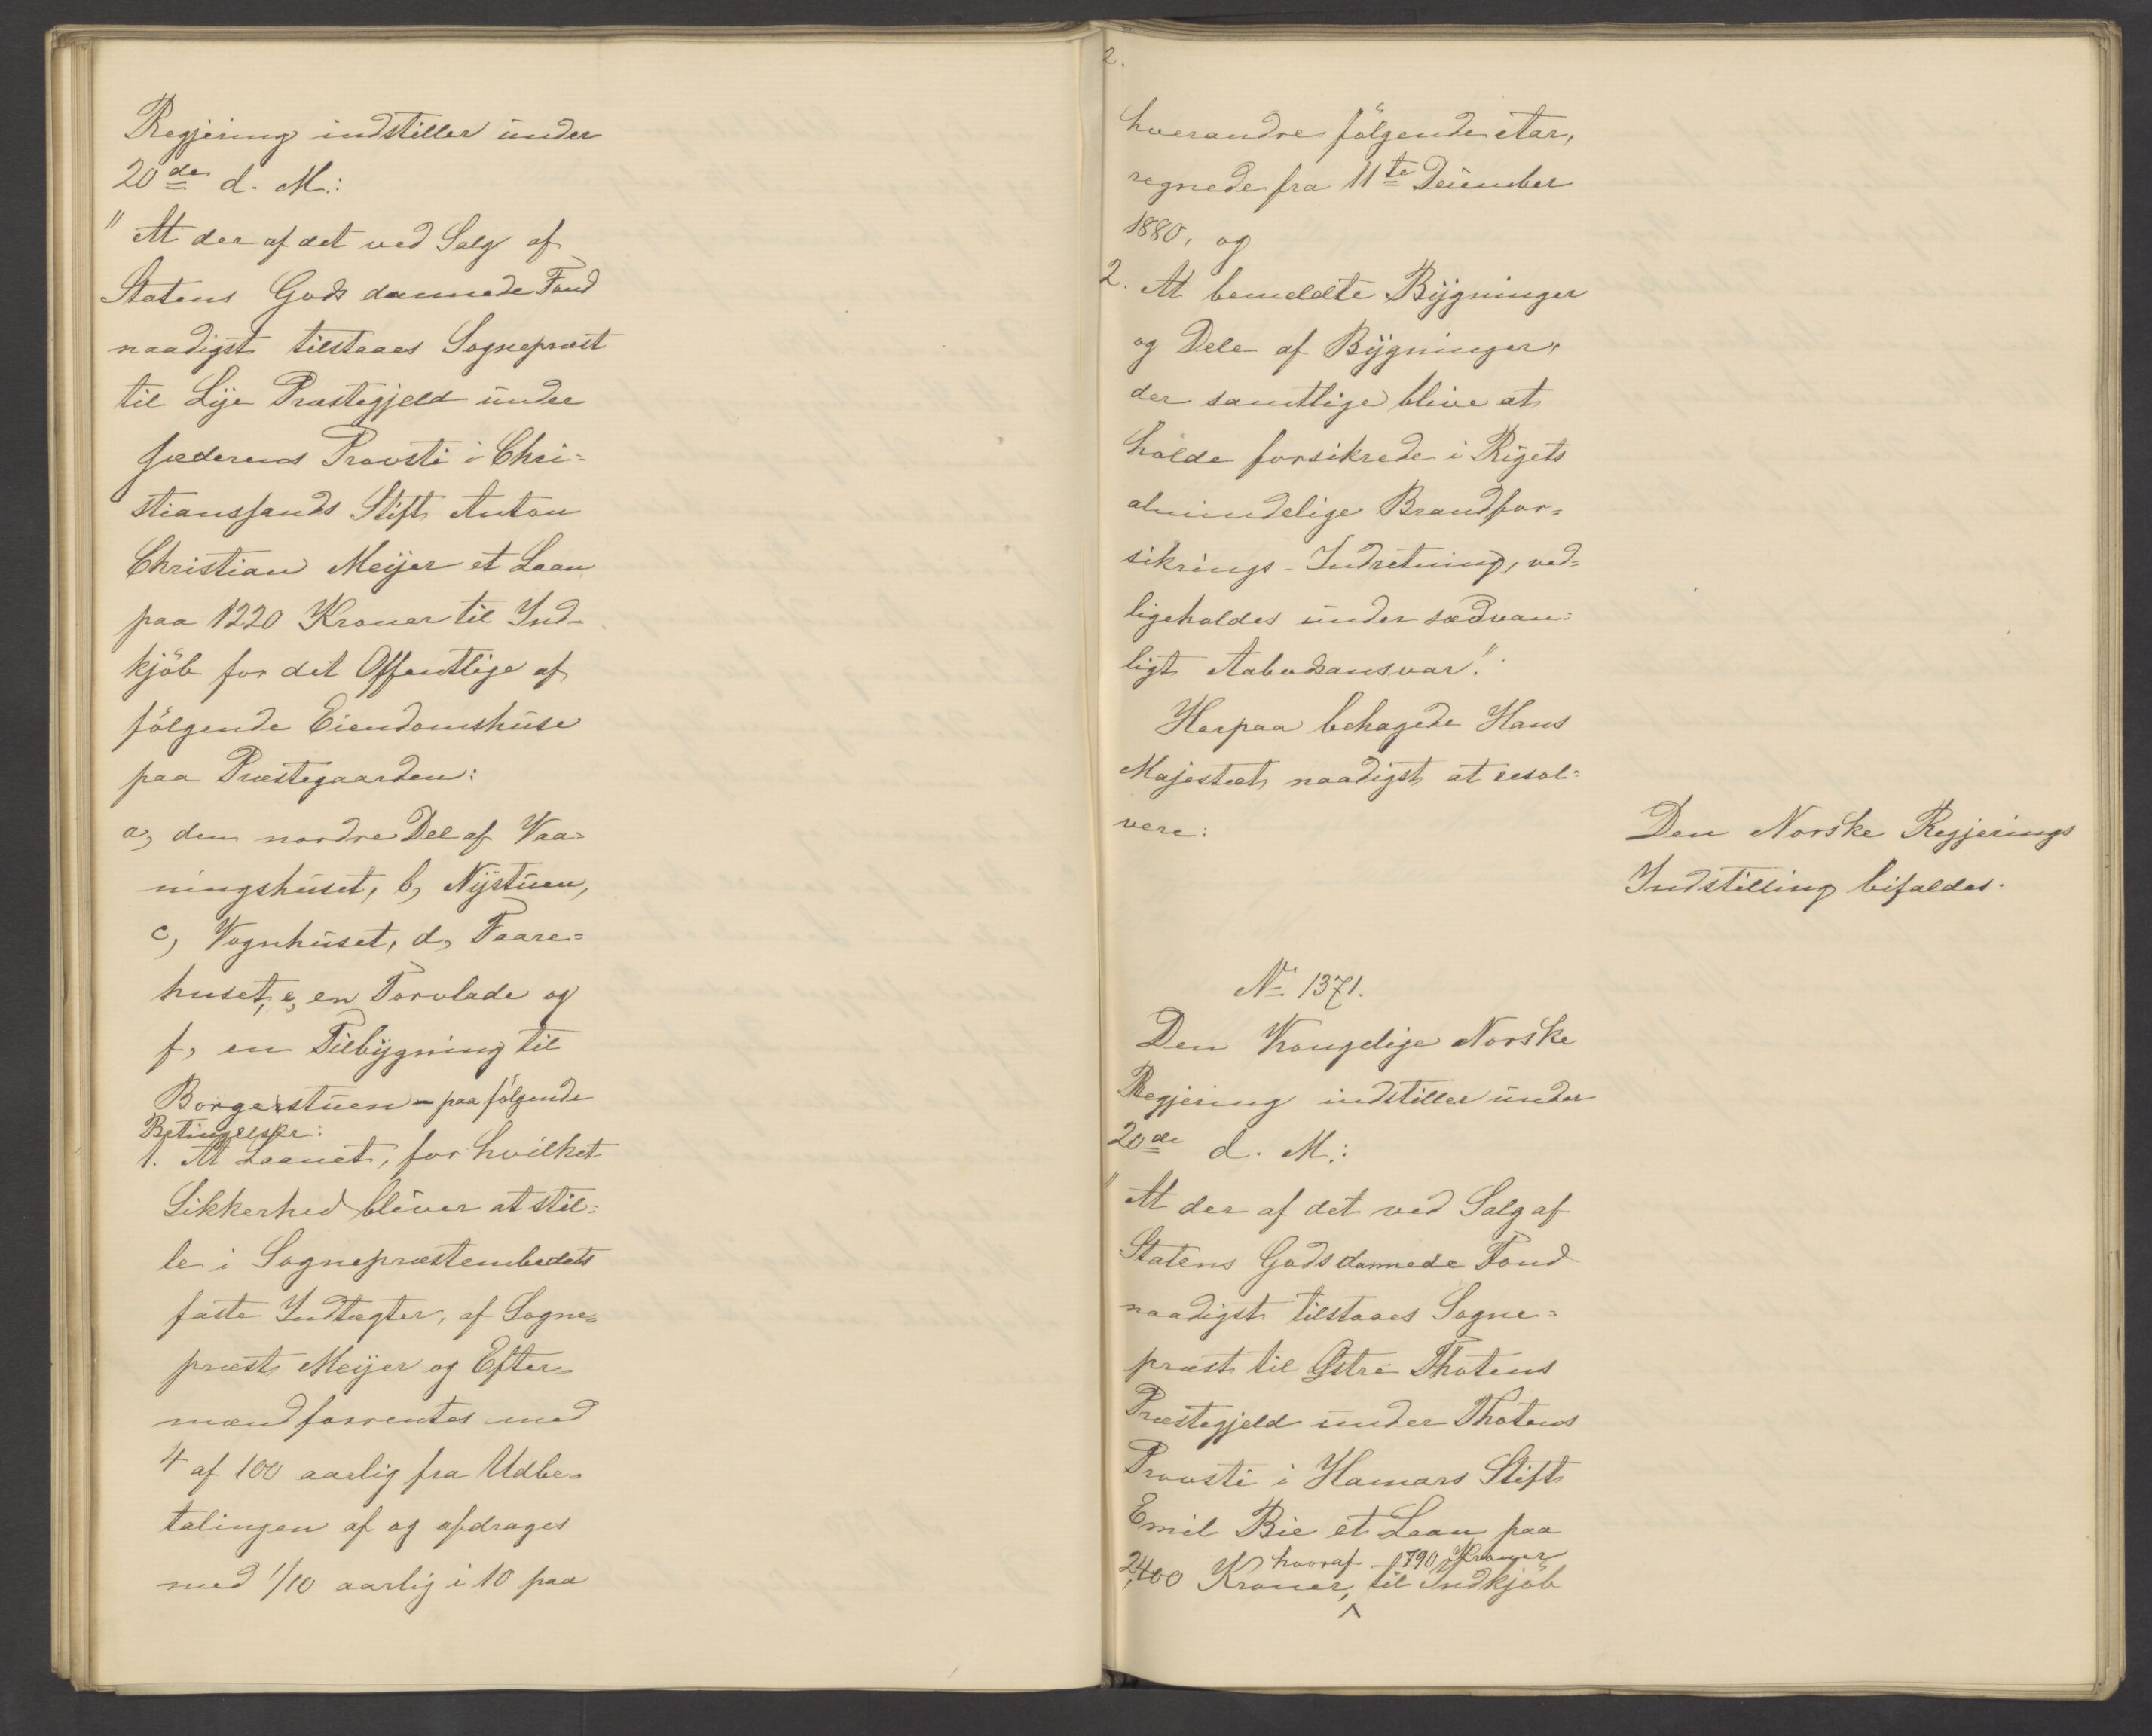 Regjering indstiller under
20de d. M.:
"At der af det ved Salg af
Statens Gods dannede Fond
naadigst tilstaaes Sognepræst
til Lye Præstegjeld under
Jæderens Provsti i Chri=
stianssands Stift Anton
Christian Meijer et Laan
paa 1220 Kroner til Ind-
kjöb for det Offentlige af
fölgende Eiendomshuse
paa Præstegaarden:
a, den nordre Del af Vaa=
ningshuset, b, Nystuen,
c, Vognhuset, d, Faare=
huset, e, en Torvlade og
f, en Tilbygning til
Borgerstuen - paa fölgende
Betingelser:
1. At Laanet, for hvilket
Sikkerhed bliver at stil=
le i Sognepræstembedets
faste Indtægter, af Sogne=
præst Meijer og Efter=
mænd forrentes med
4 af 100 aarlig fra Udbe=
talingen af og afdrages
med 1/10 aarlig i 10 paa
2.
hverandre fölgende Aar,
regnede fra 11te December
1880, og
2. At bemeldte Bygninger
og Dele af Bygninger,
der samtlige blive at
holde forsikrede i Rigets
almindelige Brandfor=
sikrings-Indretning, ved=
ligeholdes under sædvan=
ligt Aabodsansvar."
Herpaa behagede Hans
Majestæt naadigst at resol=
vere:
Den Norske Regjerings
Indstilling bifaldes.
No 1371.
Den Kongelige Norske
Regjering indstiller under
20de d. M.:
"At der af det ved Salg af
Statens Gods dannede Fond
naadigst tilstaaes Sogne=
præst til Østre Thotens
Præstegjeld under Thotens
Provsti i Hamars Stift
Emil Bie et Laan paa
hvoraf 1790 Kroner
2,400 Kroner, til Indkjöb